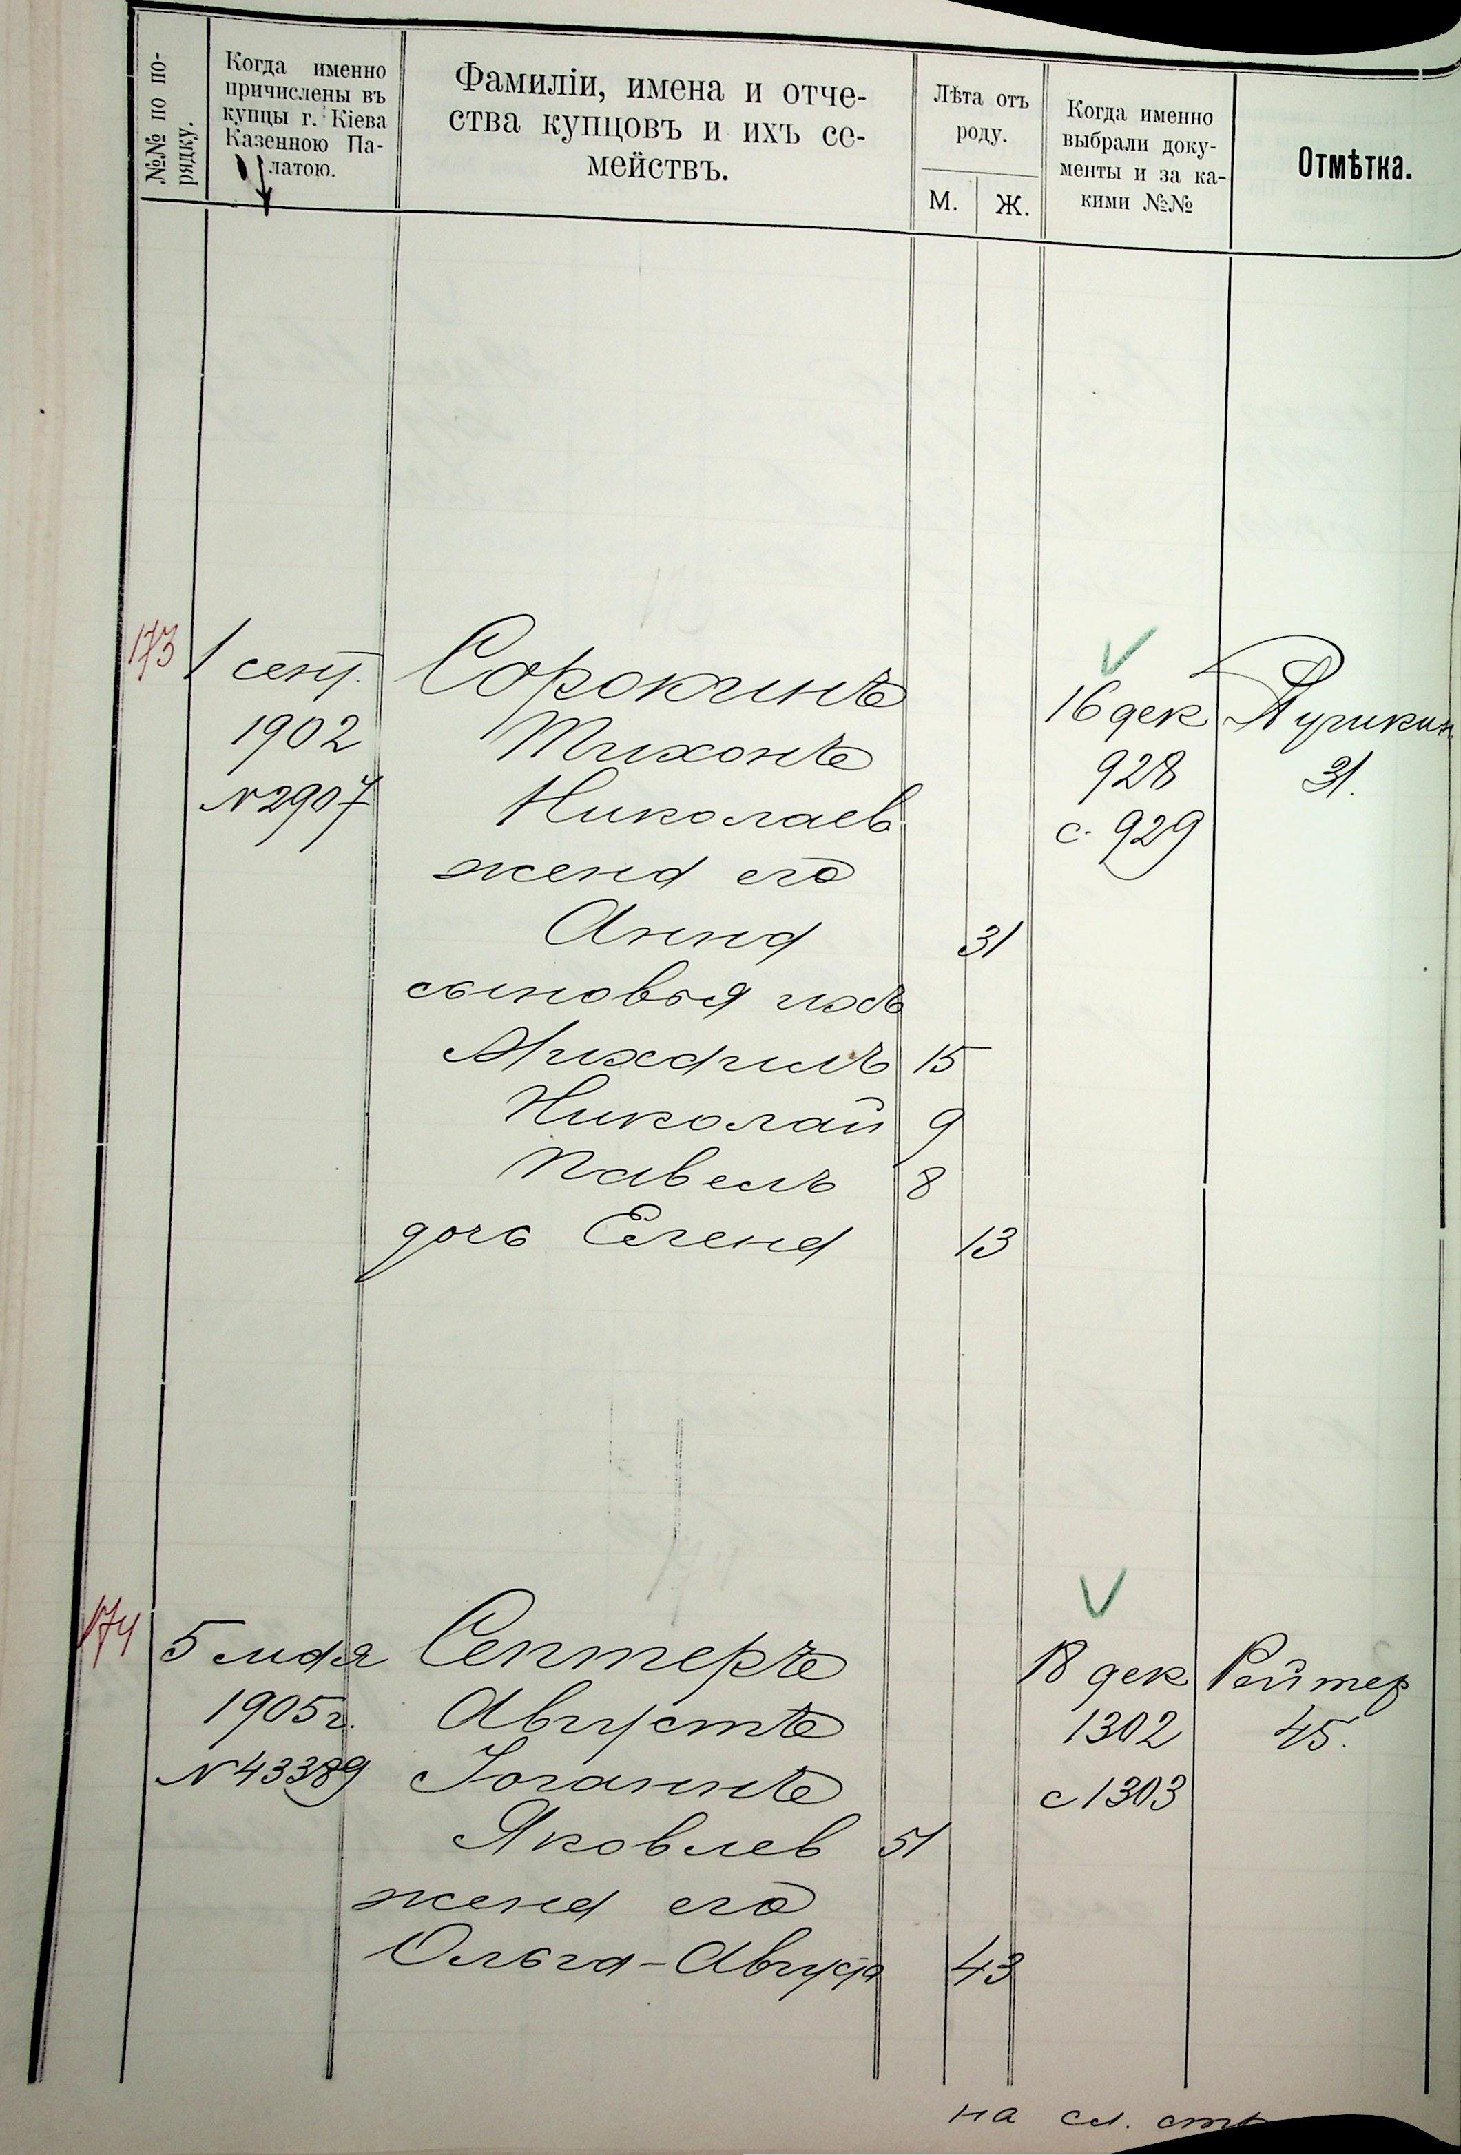 №№ по по-
рядку.
Когда именно
причислены въ
купцы г. Кіева
Казенною Па-
латою.
Фамиліи, имена и отче-
ства купцовъ и ихъ се-
мействъ.
Лѣта отъ
роду.
М.
Ж.
Когда именно
выбрали доку-
менты и за ка-
кими №№
Отмѣтка.
173 1 сент. Сорокинъ 16 дек Пушкин
1902 Тихонъ 928 31.
№2907 Николаев с. 929
жена его
Анна 31
сыновья ихъ
Михаилъ 15
Николай 9
Павелъ 8
дочь Елена 13
174 5 мая Септеръ 18 дек Рейтер
1905г. Августъ 1302 45.
№43389 Іоганнъ с 1303
Яковлев 51
жена его
Ольга-Августа 43
на сл. стр